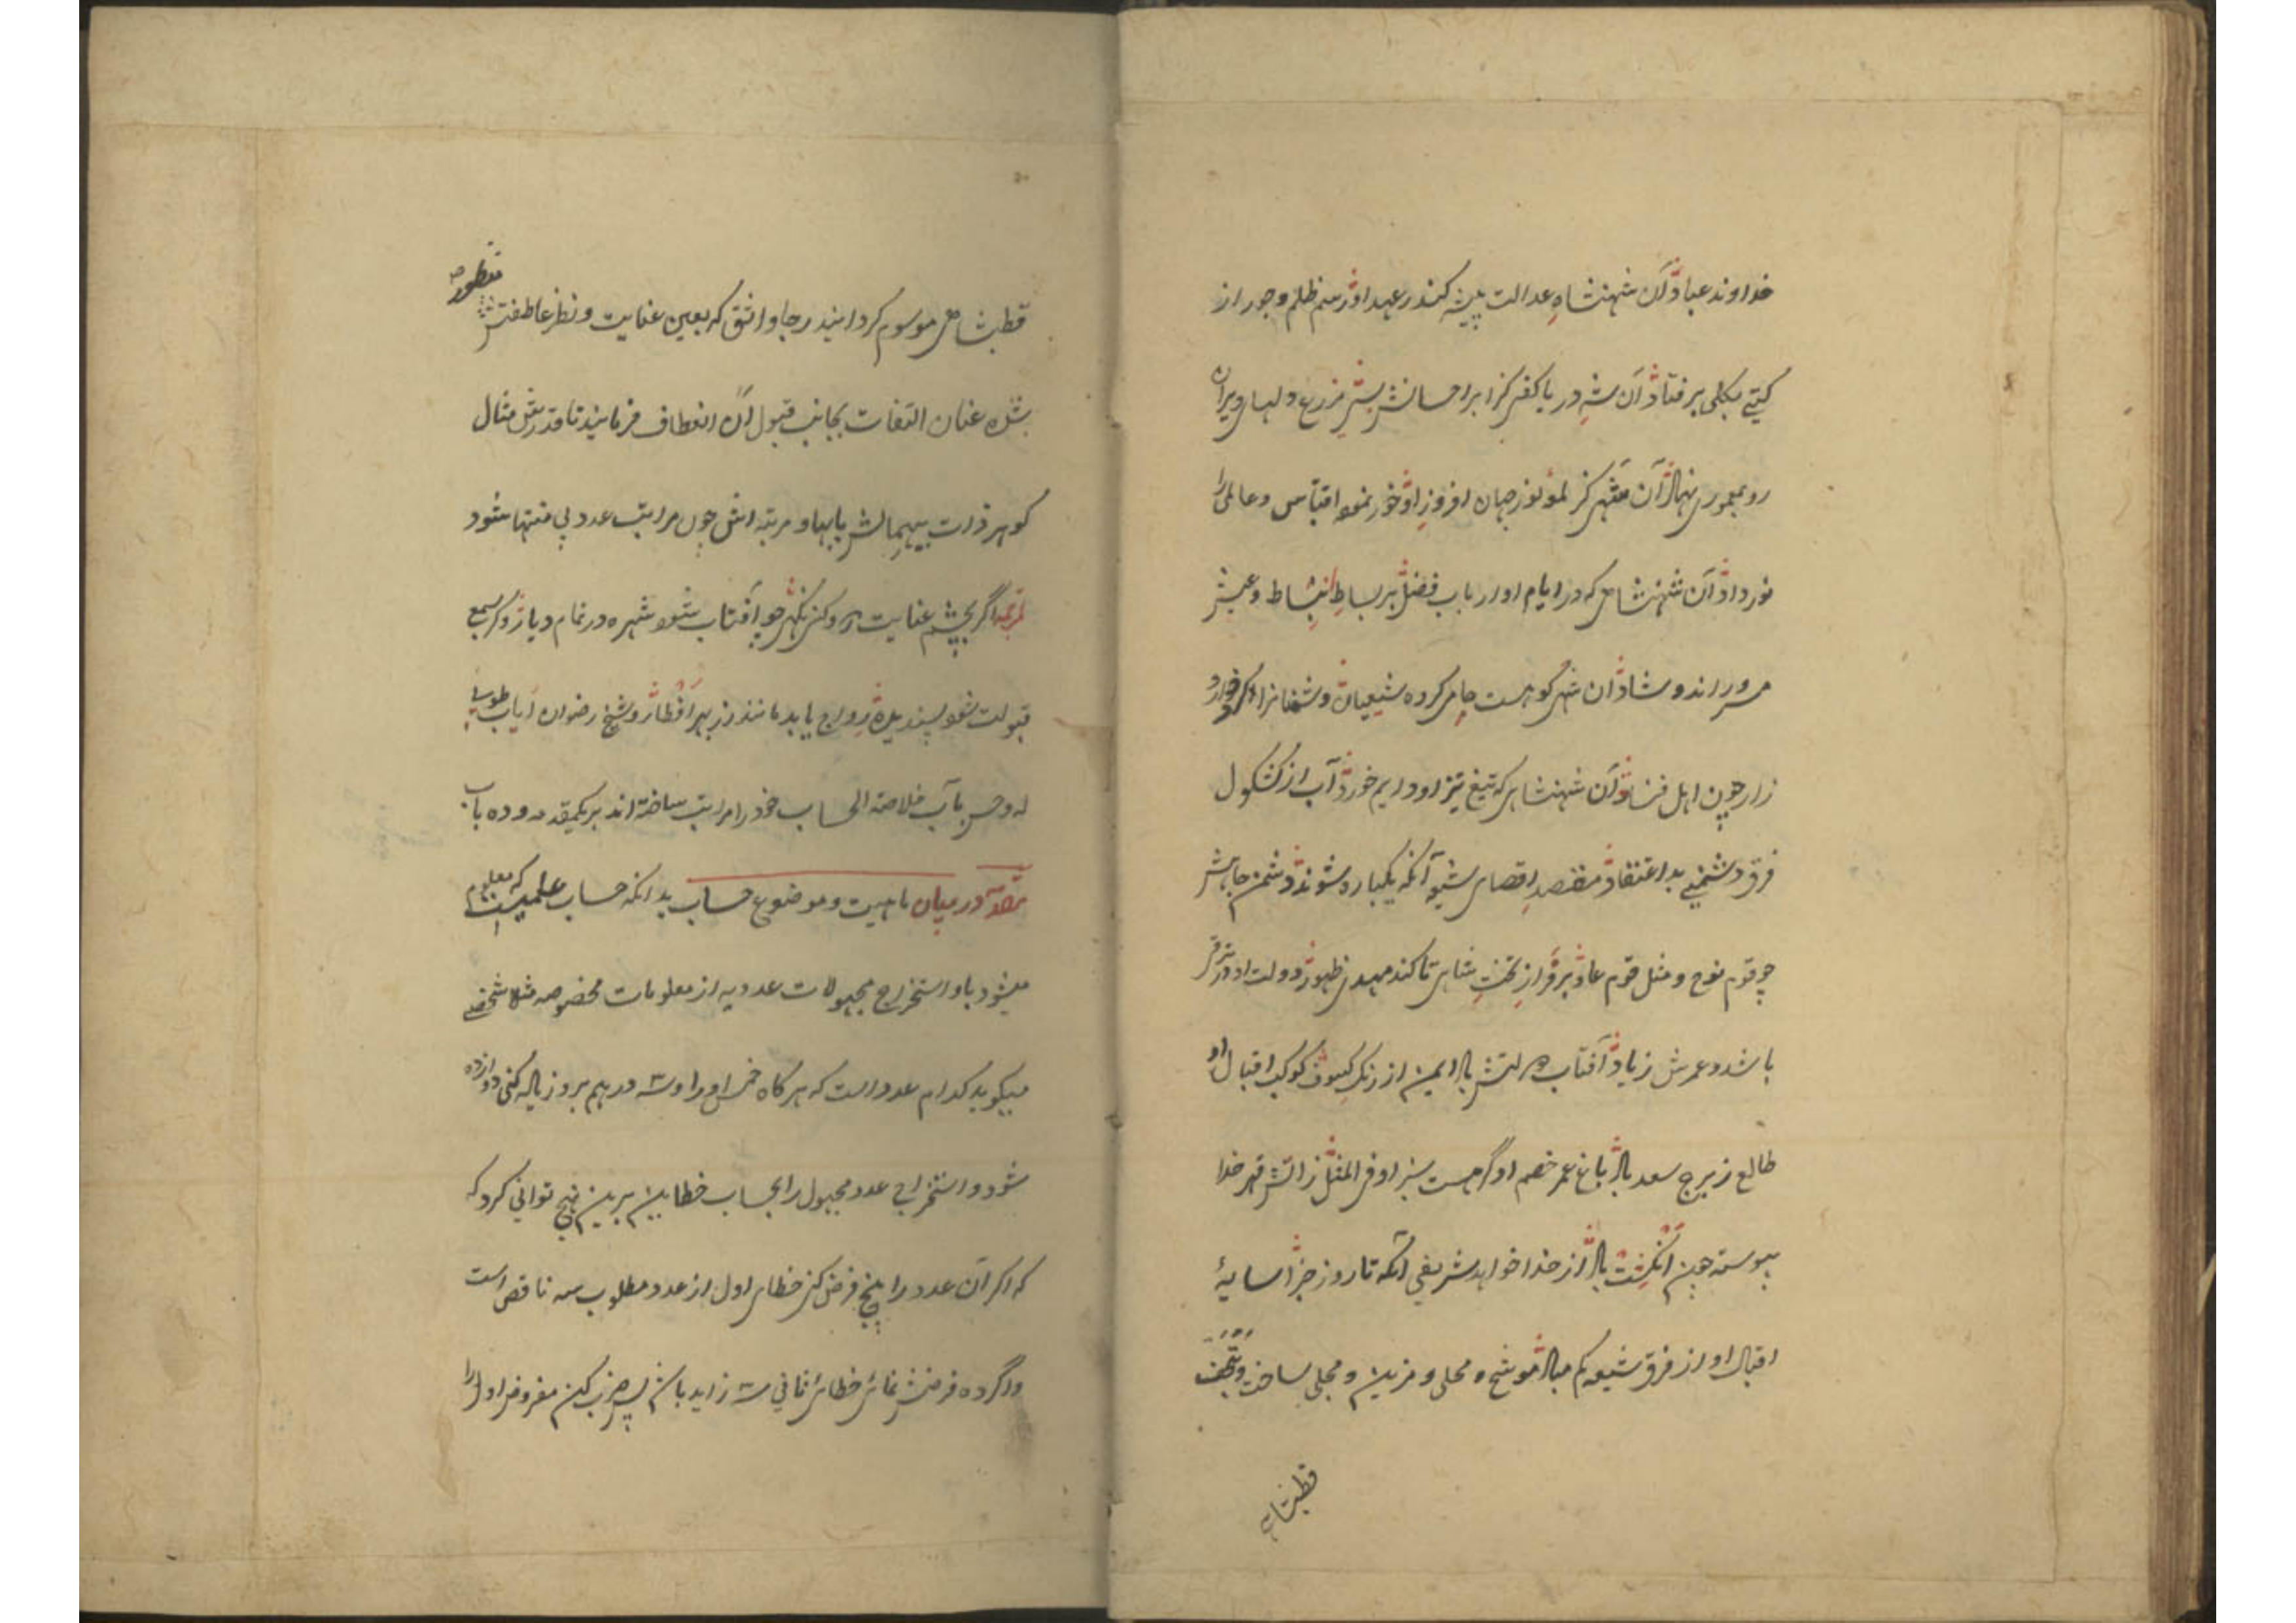 خداوند عباد آن شهنشاه عدالت پیشه کندر عهد او رسم ظلم و جور از
کیتی بکلی برفتاد آن شه دریا کفی کز ابر احسانش بسی مزرع دلهای ویران
رو بمعموری نهاد آن مهی کز لمؤ نور جهان افروز او خور نموده اقتباس و عالمی را
نور داد آن شهنشاهی که در ایام او ارباب فضل بر بساط انبساط و عیش
مرور اند و شاد آن شهی کوهست حامی کرده شیعیان و شمنانرا
زار چون اهل فساد آن شهنشاهی که تیغ تیز او دایم خورد آب از کشکول
فرق دشمنی بد اعتقاد مقتصد اقصای شیو آنکه یکباره شوند دشمن جاهش
چو قوم نوح و مثل قوم عاد بر فراز تخت شاهی تا کند مهدی ظهور دولت او در ترقی
باشد و عمرش زیاد آفتاب دولتش بادا ایمن از زنک کسوف کوکب اقبال او
طالع ز برج سعد باد باغ عمر خصم او گر هست سبز او فی المثل ز اتش قهر خدا
پیوسته چون انگشت باد از خدا خواهد شریفی آنکه تا روز جزا سایهٔ
اقبال او از فرق شیو کم مباد موشح و محلی و مزین و مجلی ساخت و بتحفت
قطبشاهی
قطبشاهی موسوم کردانید رجا واثق که بعین عنایت و نظر عاطفتش منظور
شده عنان التفات بجانب قبول آن انعطاف فرمایند تا قدرش مثال
کوهر ذرات بیهمالش بابها و مرتبه اش چون مراتب عدد بی منتها شود
اگر بچشم عنایت درو کنی نگهی چو آفتاب شود شهره در تمام دیار و کر بسمع
قبولت شود پسندیده رواج یابد مانند زر بهر اقطار و شیخ رضوان ایاب طوبی
له و حسن باب خلاصة الحساب خود را مرتب ساخته اند بر یکمقدمه و ده باب
مقدمه در بیان ماهیت و موضوع حساب بدانکه حساب علمیست که معلوم
میشود باو استخراج مجهولات عددیه از معلومات مخصوصه مثلا شخصی
میکوید کدام عدد است که هر کاه خمس او را و سه درهم برو زیاده کنی دوازده
شود و استخراج عدد مجهول را بحساب خطایین برین نهج توانی کرد که
که اکر آن عدد را پنج فرض کنی خطای اول از عدد مطلوب سه ناقص است
و اگر ده فرضش نمائی خطائ ثانی سه زاید باشد پس ضرب کن مفروض اول را